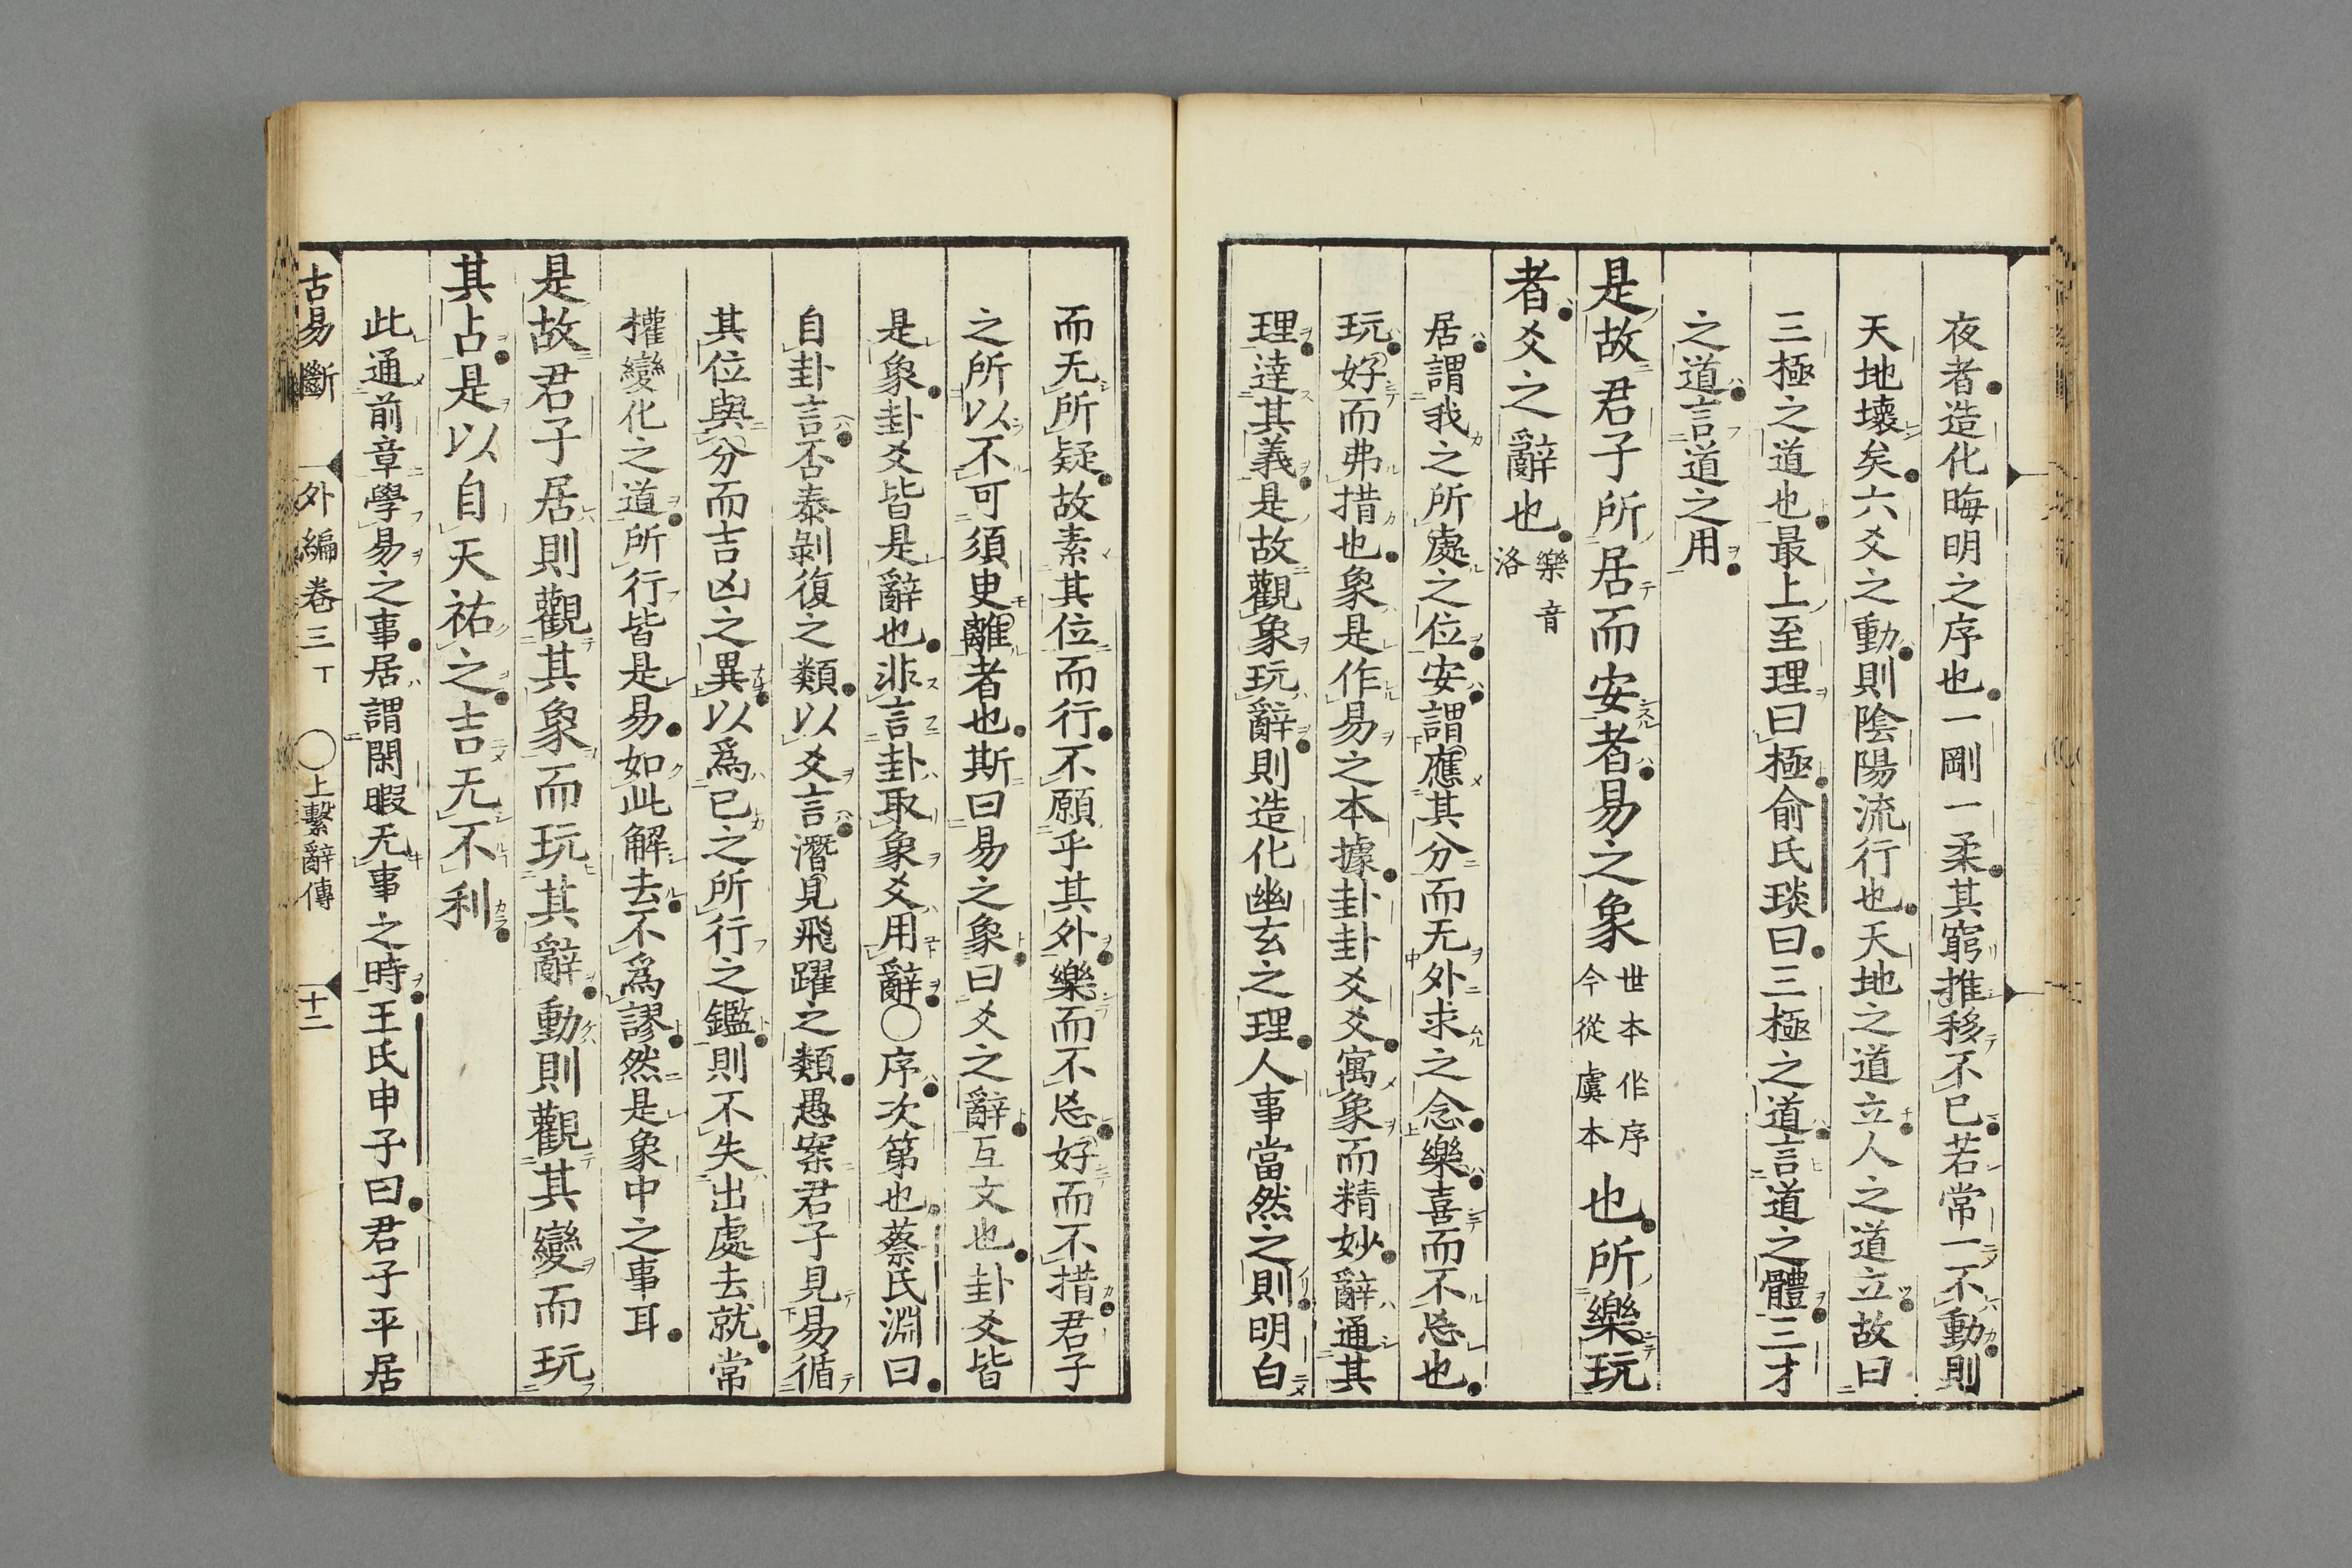 夜者造化晦明之序也一剛一柔其窮推移不已若常一不動則
天地壊矣六爻之動則陰陽流行也天地之道立人之道立故曰
三極之道也最上至理曰極俞氏琰曰三極之道言道之體三才
之道言道之用
是故君子所居而安者易之象世本作序今從虞本也所樂玩
者爻之辭也樂音洛
居謂我之所處之位安謂應其分而无外求之念樂喜而不忌也
玩好而弗措也象是作易之本據卦卦爻爻寓象而精妙辭通其
理達其義是故觀象玩辭則造化幽玄之理人事當然之則明白
而无所疑故素其位而行不願乎其外樂而不忌好而不措君子
之所以不可須臾離者也斯曰易之象曰爻之辭互文也卦爻皆
是象卦爻皆是辭也非言卦取象爻用辭〇序次第也蔡氏淵曰
自卦言否泰剝復之類以爻言潛見飛躍之類愚案君子見易循
其位與分而吉凶之異以爲己之所行之鑑則不失出處去就常
權變化之道所行皆是易如此解去不爲謬然是象中之事耳
是故君子居則觀其象而玩其辭動則觀其變而玩
其占是以自天祐之吉无不利
此通前章學易之事居謂閑暇无事之時王氏申子曰君子平居
古易斷 外編卷三下 〇上繫辭傳 十二